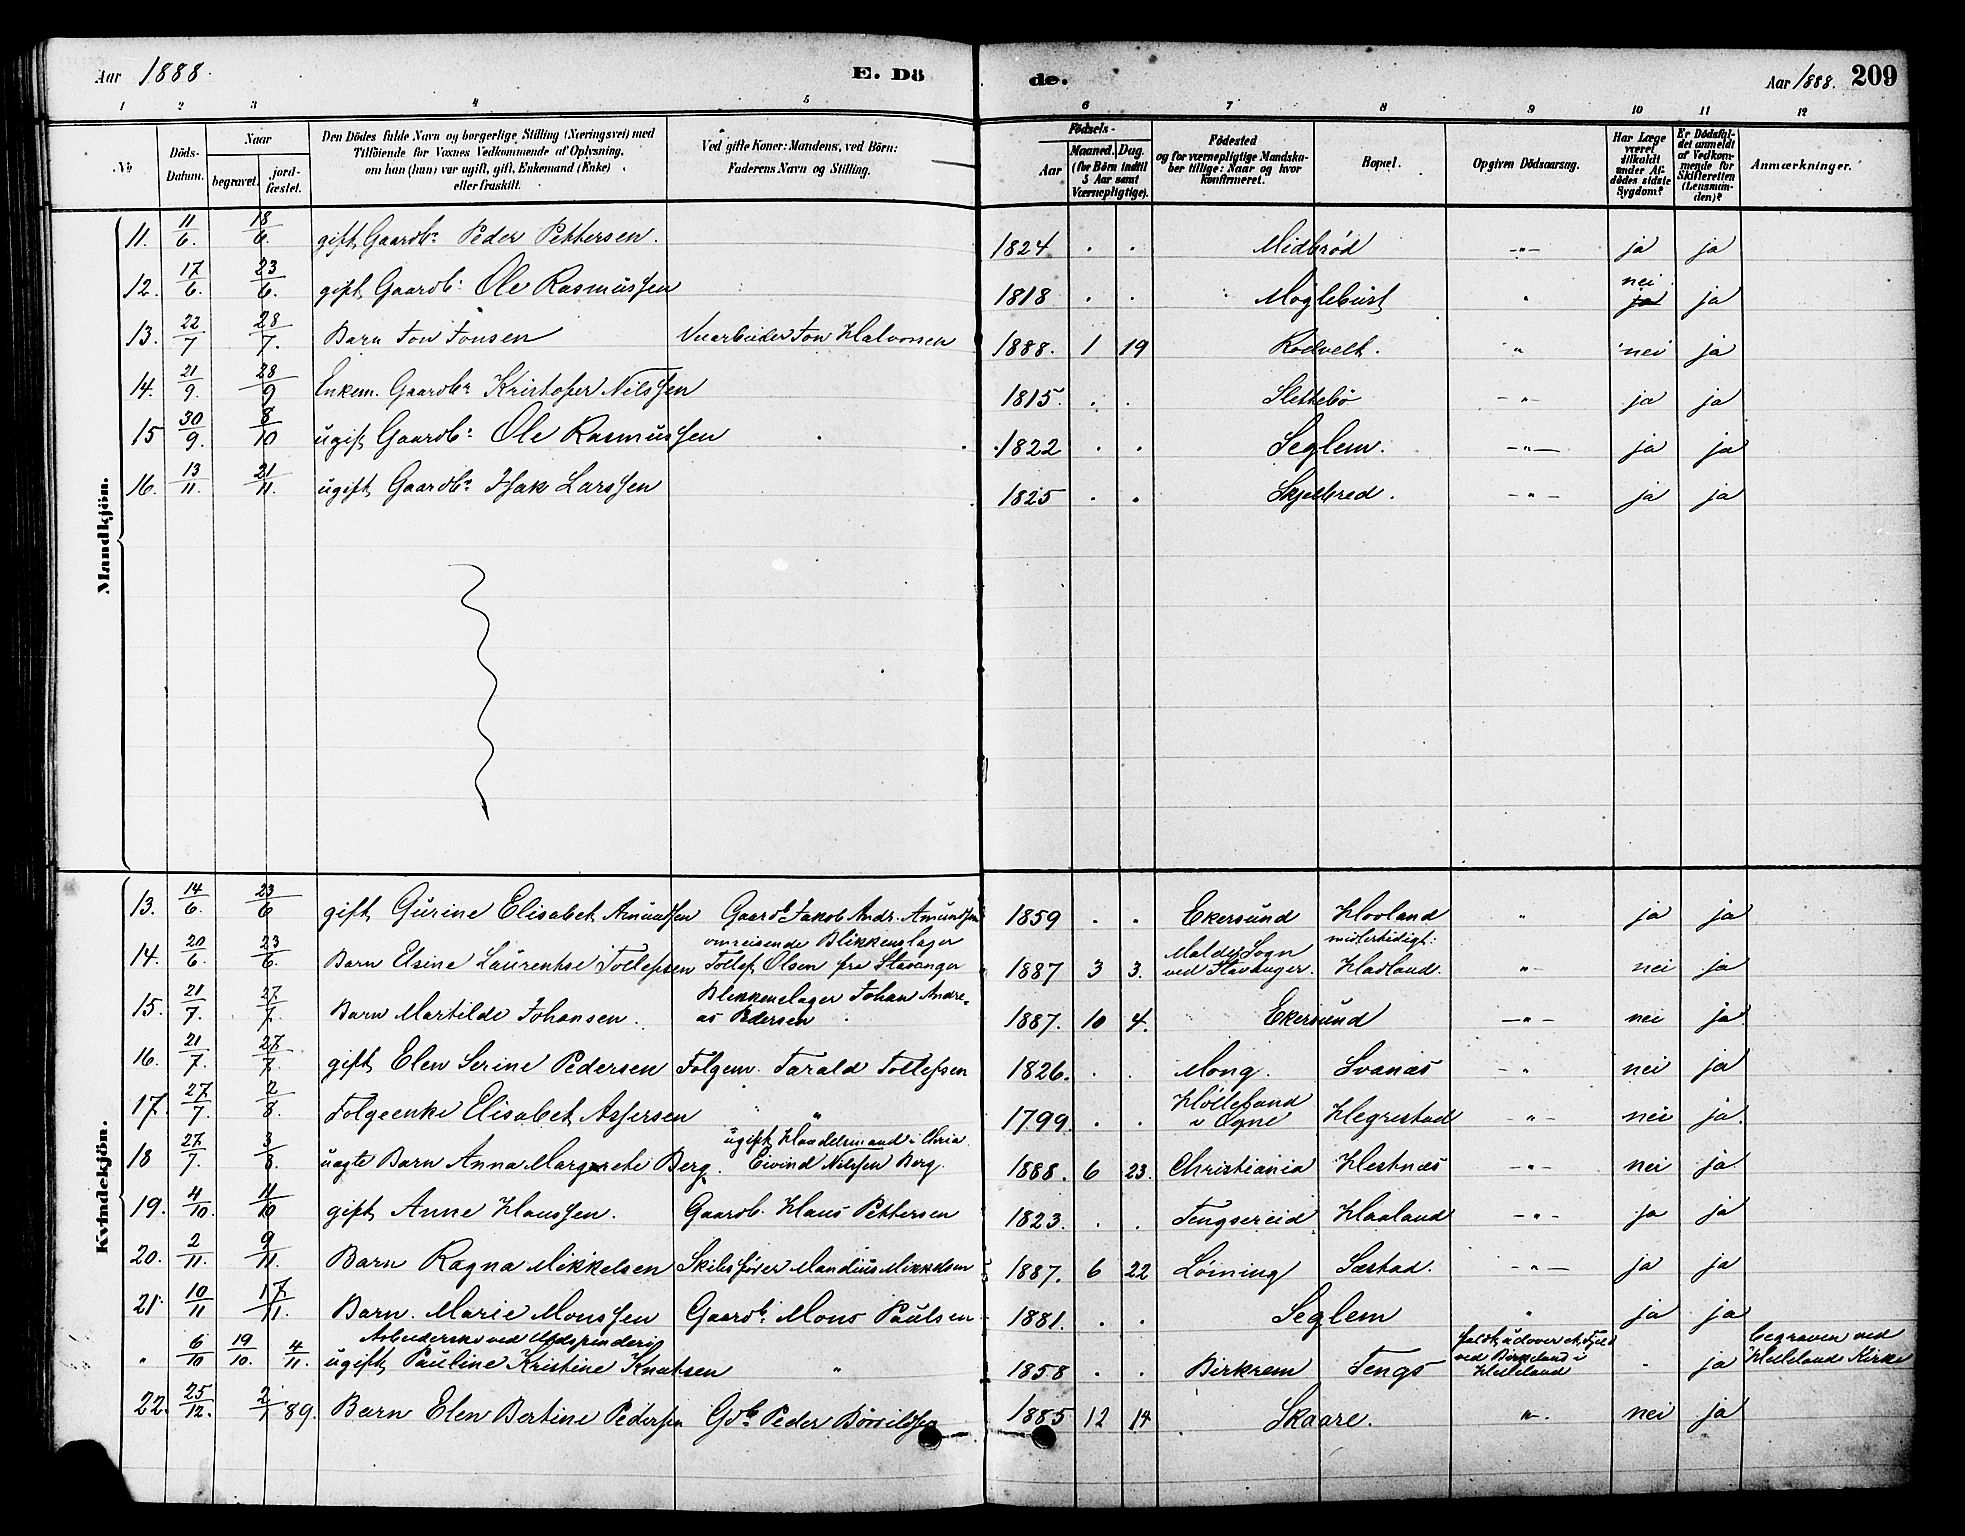 Aar 1888. E. Dö de. Aar 1888. 209
1 2 3 4 5 6 7 8 9 10 11 12
No Döds-Datum. Naar begravet. jordfæstet. Den Dödes fulde Navn og borgerlige Stilling (Næringsvei) med Tilföiende for Voxnes Vedkommende af Oplysning, om han (hun) var ugift, gift, Enkemand (Enke) eller fraskilt. Ved gifte Koner: Mandens, ved Börn: Faderens Navn og Stilling. Födsels- Aar Maaned. Dag. (for Börn indtil 5 Aar samt Værnepligtige). Födested og for værnepligtige Mandskaber tillige: Naar og hvor konfirmeret. Bopæl. Opgiven Dödsaarsag. Har Læge været tilkaldt under Afdödes sidste Sygdom? Er Dödsfaldet anmeldt af Vedkommende for Skifteretten (Lensmanden)? Anmærkninger.
Mandkjön.
11. 11/6. 18/6. gift Gaardbr Peder Pettersen. 1824 . . Midbrød -"- ja ja
12. 17/6. 23/6. gift Gaardb: Ole Rasmussen 1818 . . Moglebust " nei ja ja
13. 22/7 28/7. Barn Jon Jonsen Vuarbeider Jon Halvorsen 1888. 1 19 Rodvelt. " nei ja
14. 21/9. 28/9 Enkem. Gaardbr Kristofer Nilssen 1815. . . Slettebø -"- ja ja
15 30/9. 8/10 ugift Gaardb: Ole Rasmussen 1822 . . Seglem. -"- ja ja
16. 13/11. 21/11. ugift Gaardbr Isak Larssen 1825 . . Skjelbred. -"- ja ja
Kvindekjön.
13. 14/6. 23/6 gift Gurine Elisabet Amundsen Gaardb. Jakob Andr. Amundsen 1859 . . Ekersund Hovland " ja ja
14. 20/6. 23/6. Barn Elsine Laurentse Tollefsen omreisende Blikkenslager Tollef Olsen fra Stavanger 1887 3 3. Malde Sogn ved Stavanger. midlertidigt: Hadland. -"- nei ja
15. 21/7. 27/7. Barn Martilde Johansen. Blikkenslager Johan Andreas Pedersen 1887. 10 4. Ekersund -"- nei ja
16. 21/7. 27/7. gift Elen Serine Pedersen Folgem. Tarald Tollefsen 1826. . . Mong. Svanæs -"- nei ja
17. 27/7. 2/8. Folgeenke Elisabet Assersen " 1799. . . i Ogne Hegrestad -"- nei ja.
18 27/7. 3/8. uægte Barn Anna Margrete Berg. ugift Handelsmand i Chria. Eivind Nilssen Berg. 1888. 6 23. Christiania Hestnæs -"- nei ja
19. 4/10. 11/10 gift Anne Hanssen. Gaardb. Hans Pettersen 1823. . . Tengsereid Haaland -"- ja ja
20. 2/11. 9/11. Barn Ragna Mikkelsen Skibsfører Mandius Mikkelsen 1887. 6 22 Löining Sæstad. -"- ja ja
21. 10/11 17/11. Barn. Marie Monssen Gaardb. Mons Paulsen 1881. . . Seglem " ja ja
" 6/10 19/10. 4/11. Arbeiderske ved Uldspinderij ugift Pauline Kristine Knutsen " 1858 . . Birkrem Tengs faldt udover et Fjeld ved Birkeland i Helleland . ja begraven ved Hellelands Kirke
22. 25/12. 2/1 89. Barn Elen Bertine Pedersen Gdb. Peder 1885 12 14 Skaare. " nei ja